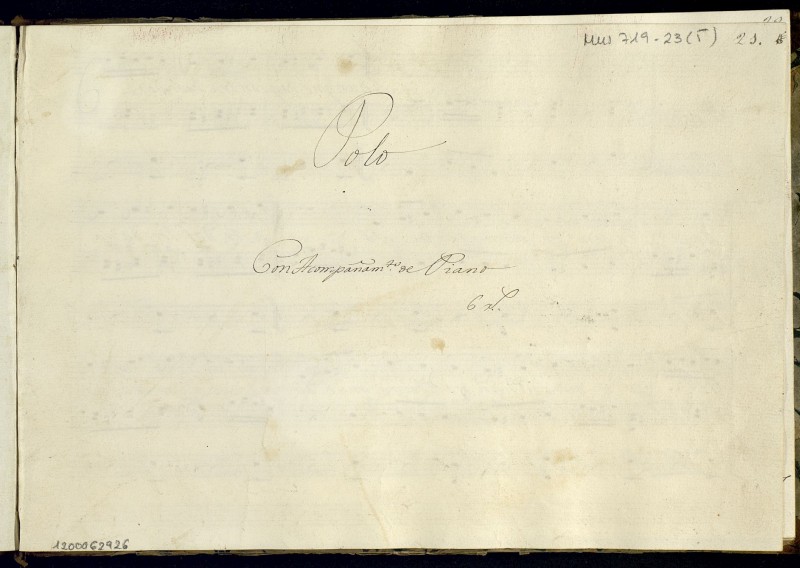 Mus 719-23 (T) 23.
Polo
Con Acompañam.to de Piano
6 rl.
1200062926